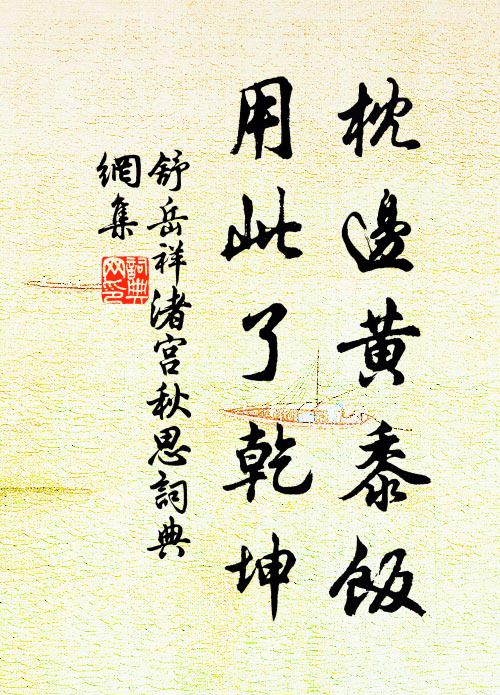 枕邊黃黍飯
用此了乾坤
舒岳祥渚宫秋思詞典
網集